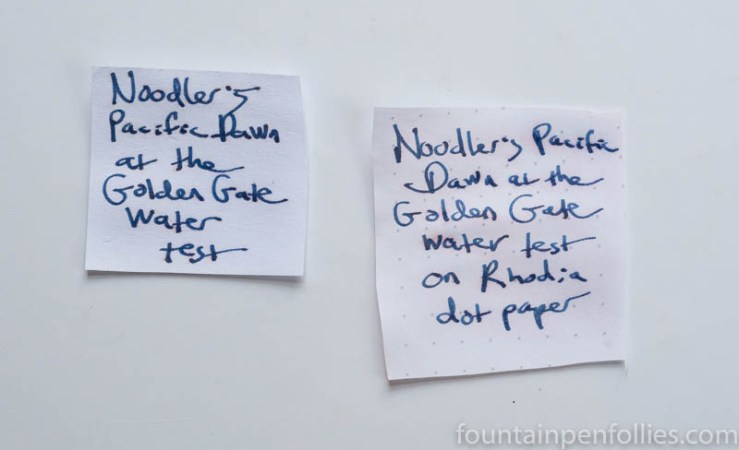 Noodler's
Pacific Dawn
at the
Golden Gate
Water
test
Noodler's Pacific
Dawn at the
Golden Gate
water test
on Rhodia
dot paper
fountainpenfollies.com